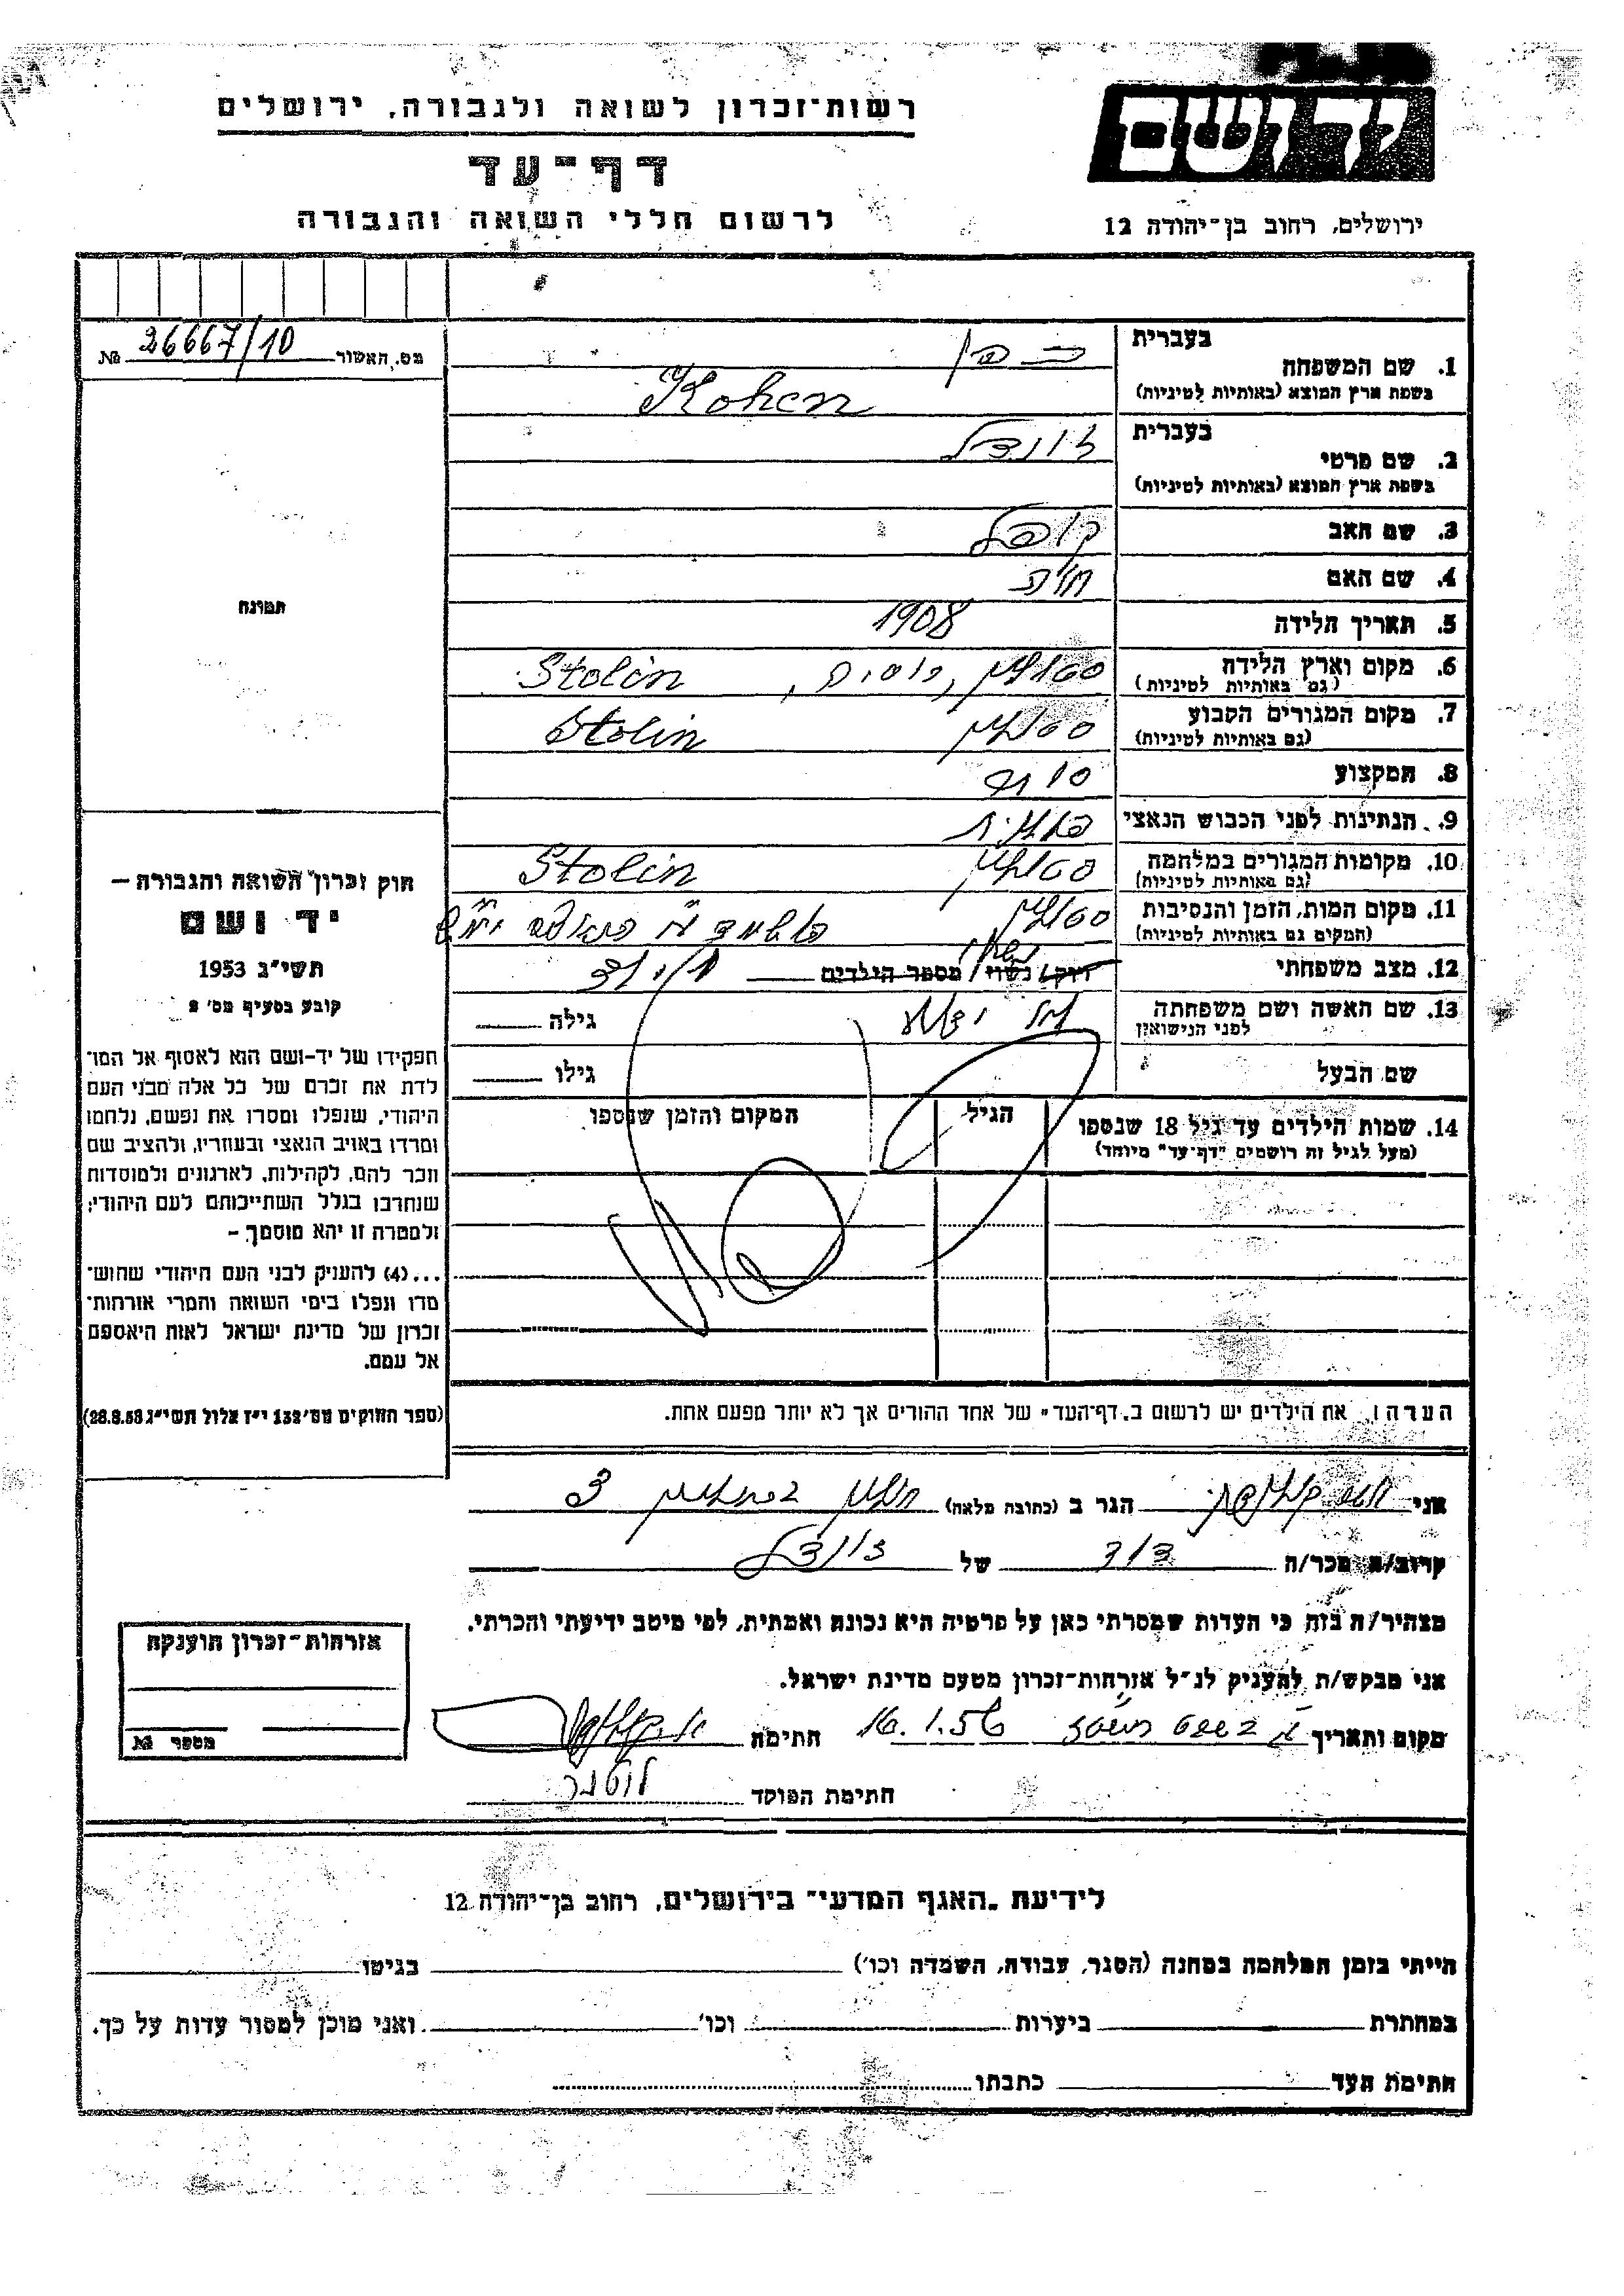 רשות־זכרון לשואה ולגבורה, ירושלים
דף־עד
לרשום חללי השואה והגבורה
יד ושם
ירושלים, רחוב בן־יהודה 12
מס. האשור 26667/10 №
תמונה
חוק זכרון השואה והגבורה —
יד ושם
תשי״ג 1953
קובע בסעיף מס׳ 2
תפקידו של יד-ושם הוא לאסוף אל המו־
לדת את זכרם של כל אלה מבני העם
היהודי, שנפלו ומסרו את נפשם, נלחמו
ומרדו באויב הנאצי ובעוזריו, ולהציב שם
וזכר להם, לקהילות, לארגונים ולמוסדות
שנחרבו בגלל השתייכותם לעם היהודי;
ולמטרה זו יהא מוסמך —
...(4) להעניק לבני העם היהודי שהוש־
מדו ונפלו בימי השואה והמרי אזרחות־
זכרון של מדינת ישראל לאות היאספם
אל עמם.
(ספר החוקים מס׳ 132 י״ז אלול תשי״ג 28.8.53)
1. שם המשפחה בעברית כהן
בשפת ארץ המוצא (באותיות לטיניות) Kohen
2. שם פרטי בעברית זונדל
בשפת ארץ המוצא (באותיות לטיניות)
3. שם האב קופל
4. שם האם חיה
5. תאריך הלידה 1908
6. מקום וארץ הלידה סטולין, רוסיה, Stolin
(גם באותיות לטיניות)
7. מקום המגורים הקבוע סטולין Stolin
(גם באותיות לטיניות)
8. המקצוע סוחר
9. הנתינות לפני הכבוש הנאצי פולנית
10. מקומות המגורים במלחמה סטולין Stolin
(גם באותיות לטיניות)
11. מקום המות, הזמן והנסיבות סטולין
(המקום גם באותיות לטיניות)
12. מצב משפחתי רווק/ נשוי/ מספר הילדים נשוי
13. שם האשה ושם משפחתה לפני הנישואין גילה
שם הבעל גילו
14. שמות הילדים עד גיל 18 שנספו הגיל המקום והזמן שנספו
(מעל לגיל זה רושמים ״דף־עד״ מיוחד)
הערה: את הילדים יש לרשום ב״דף־העד״ של אחד ההורים אך לא יותר מפעם אחת.
אני הגר ב (כתובת מלאה) 3
קרוב/ה מכר/ה דוד של זונדל
מצהיר/ה בזה כי העדות שמסרתי כאן על פרטיה היא נכונה ואמתית, לפי מיטב ידיעתי והכרתי.
אני מבקש/ת להעניק לנ״ל אזרחות־זכרון מטעם מדינת ישראל.
מקום ותאריך 16.1.56 חתימה
חתימת הפוקד
אזרחות־זכרון הוענקה
מספר №
לידיעת ״האגף המדעי״ בירושלים, רחוב בן־יהודה 12
הייתי בזמן המלחמה במחנה (הסגר, עבודה, השמדה וכו׳) בגיטו
במחתרת ביערות וכו׳ ואני מוכן למסור עדות על כך.
חתימת העד כתבתו